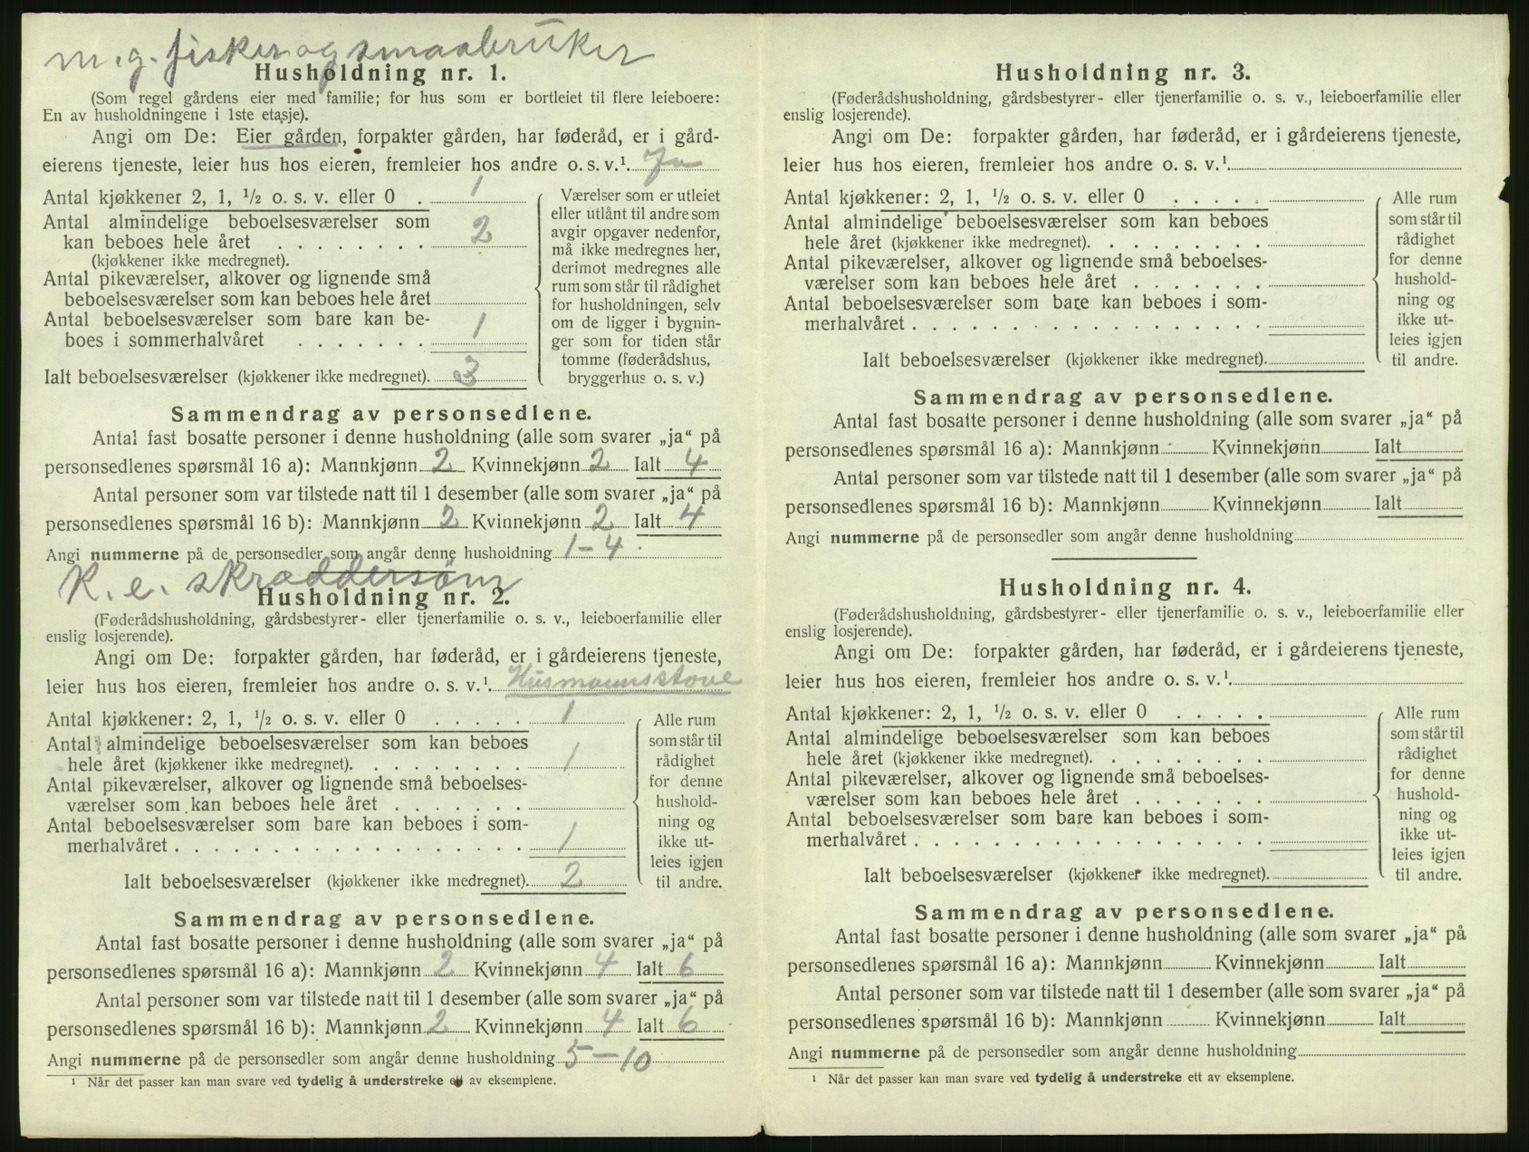 m.g. fisker og smaabruker
Husholdning nr. 1.
(Som regel gårdens eier med familie; for hus som er bortleiet til flere leieboere:
En av husholdningene i 1ste etasje).
Angi om De: Eier gården, forpakter gården, har føderåd, er i gård-
eierens tjeneste, leier hus hos eieren, fremleier hos andre o. s. v.¹ Ja
Antal kjøkkener 2, 1, ½ o. s. v. eller 0 . 1
Antal almindelige beboelsesværelser som
kan beboes hele året . . . . . . . . 2
(kjøkkener ikke medregnet).
Antal pikeværelser, alkover og lignende små
beboelsesværelser som kan beboes hele året
Antal beboelsesværelser som bare kan be-
boes i sommerhalvåret . . . . . . . 1
Ialt beboelsesværelser (kjøkkener ikke medregnet). 3
Værelser som er utleiet
eller utlånt til andre som
avgir opgaver nedenfor,
må ikke medregnes her,
derimot medregnes alle
rum som står til rådighet
for husholdningen, selv
om de ligger i bygnin-
ger som for tiden står
tomme (føderådshus,
bryggerhus o. s. v.)
Sammendrag av personsedlene.
Antal fast bosatte personer i denne husholdning (alle som svarer „ja“ på
personsedlenes spørsmål 16 a): Mannkjønn 2 Kvinnekjønn 2 Ialt 4
Antal personer som var tilstede natt til 1 desember (alle som svarer „ja“ på
personsedlenes spørsmål 16 b): Mannkjønn 2 Kvinnekjønn 2 Ialt 4
Angi nummerne på de personsedler som angår denne husholdning 1-4
K. e. skræddersøm
Husholdning nr. 2.
(Føderådshusholdning, gårdsbestyrer- eller tjenerfamilie o. s. v., leieboerfamilie eller
enslig losjerende).
Angi om De: forpakter gården, har føderåd, er i gårdeierens tjeneste,
leier hus hos eieren, fremleier hos andre o. s. v.¹ Husmannsstove
Antal kjøkkener: 2, 1, ½ o. s. v. eller 0 . . . . . 1
Antal almindelige beboelsesværelser som kan beboes
hele året (kjøkkener ikke medregnet). . . . . . . . . 1
Antal pikeværelser, alkover og lignende små beboelses-
værelser som kan beboes hele året . . . . . . .
Antal beboelsesværelser som bare kan beboes i som-
merhalvåret . . . . . . . . . . . . . . . . . . . 1
Ialt beboelsesværelser (kjøkkener ikke medregnet). 2
Alle rum
som står til
rådighet
for denne
hushold-
ning og
ikke ut-
leies igjen
til andre.
Sammendrag av personsedlene.
Antal fast bosatte personer i denne husholdning (alle som svarer „ja“ på
personsedlenes spørsmål 16 a): Mannkjønn 2 Kvinnekjønn 4 Ialt 6
Antal personer som var tilstede natt til 1 desember (alle som svarer „ja“ på
personsedlenes spørsmål 16 b): Mannkjønn 2 Kvinnekjønn 4 Ialt 6
Angi nummerne på de personsedler som angår denne husholdning 5-10
¹ Når det passer kan man svare ved tydelig å understreke et av eksemplene.
Husholdning nr. 3.
(Føderådshusholdning, gårdsbestyrer- eller tjenerfamilie o. s. v., leieboerfamilie eller
enslig losjerende).
Angi om De: forpakter gården, har føderåd, er i gårdeierens tjeneste,
leier hus hos eieren, fremleier hos andre o. s. v.¹
Antal kjøkkener: 2, 1, ½ o. s. v. eller 0 . . . . .
Antal almindelige beboelsesværelser som kan beboes
hele året (kjøkkener ikke medregnet). . . . . . . . .
Antal pikeværelser, alkover og lignende små beboelses-
værelser som kan beboes hele året . . . . . . .
Antal beboelsesværelser som bare kan beboes i som-
merhalvåret . . . . . . . . . . . . . . . . . . .
Ialt beboelsesværelser (kjøkkener ikke medregnet).
Alle rum
som står til
rådighet
for denne
hushold-
ning og
ikke ut-
leies igjen
til andre.
Sammendrag av personsedlene.
Antal fast bosatte personer i denne husholdning (alle som svarer „ja“ på
personsedlenes spørsmål 16 a): Mannkjønn Kvinnekjønn Ialt
Antal personer som var tilstede natt til 1 desember (alle som svarer „ja“ på
personsedlenes spørsmål 16 b): Mannkjønn Kvinnekjønn Ialt
Angi nummerne på de personsedler som angår denne husholdning
Husholdning nr. 4.
(Føderådshusholdning, gårdsbestyrer- eller tjenerfamilie o. s. v., leieboerfamilie eller
enslig losjerende).
Angi om De: forpakter gården, har føderåd, er i gårdeierens tjeneste,
leier hus hos eieren, fremleier hos andre o. s. v.¹
Antal kjøkkener: 2, 1, ½ o. s. v. eller 0 . . . . .
Antal almindelige beboelsesværelser som kan beboes
hele året (kjøkkener ikke medregnet). . . . . . . . .
Antal pikeværelser, alkover og lignende små beboelses-
værelser som kan beboes hele året . . . . . . .
Antal beboelsesværelser som bare kan beboes i som-
merhalvåret . . . . . . . . . . . . . . . . . . .
Ialt beboelsesværelser (kjøkkener ikke medregnet).
Alle rum
som står til
rådighet
for denne
hushold-
ning og
ikke ut-
leies igjen
til andre.
Sammendrag av personsedlene.
Antal fast bosatte personer i denne husholdning (alle som svarer „ja“ på
personsedlenes spørsmål 16 a): Mannkjønn Kvinnekjønn Ialt
Antal personer som var tilstede natt til 1 desember (alle som svarer „ja“ på
personsedlenes spørsmål 16 b): Mannkjønn Kvinnekjønn Ialt
Angi nummerne på de personsedler som angår denne husholdning
¹ Når det passer kan man svare ved tydelig å understreke ett av eksemplene.